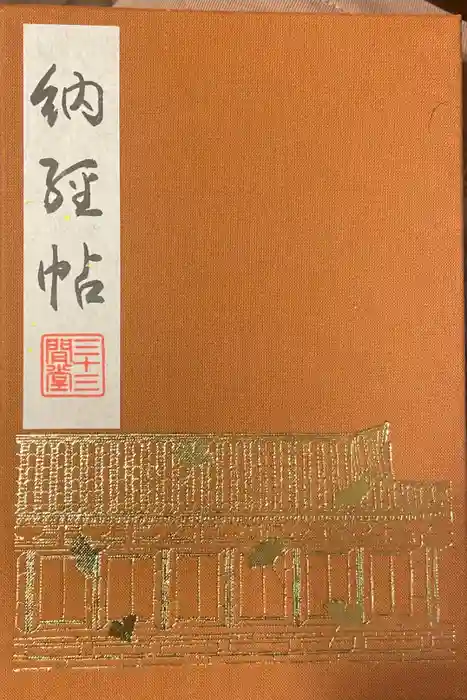 納経帖
三十三
間堂